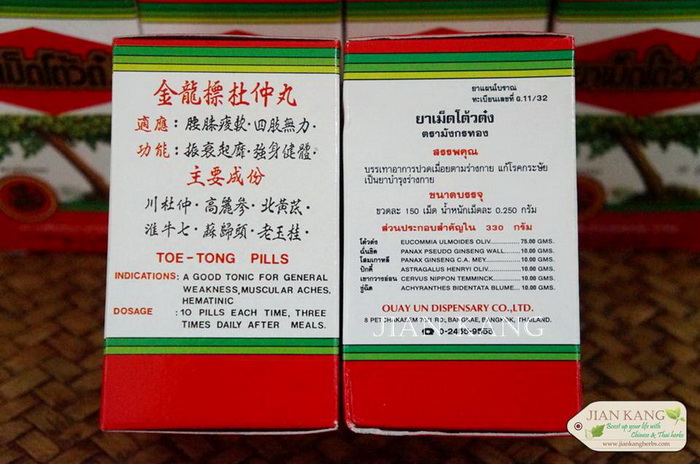 金龍標杜仲丸
適應：腰膝痠軟·四肢無力·
功能：振衰起靡·強身健體·
主要成份
川杜仲·高麗參·北黃芪·
淮牛七·蘇歸頭·老玉桂·
TOE-TONG PILLS
INDICATIONS: A GOOD TONIC FOR GENERAL
WEAKNESS, MUSCULAR ACHES,
HEMATINIC
DOSAGE : 10 PILLS EACH TIME, THREE
TIMES DAILY AFTER MEALS.
ยาแผนโบราณ
ทะเบียนเลขที่ G.11/32
ยาเม็ดโต้วต๋ง
ตรามังกรทอง
สรรพคุณ
บรรเทาอาการปวดเมื่อยตามร่างกาย แก้โรคกระษัย
เป็นยาบำรุงร่างกาย
ขนาดบรรจุ
ขวดละ 150 เม็ด น้ำหนักเม็ดละ 0.250 กรัม
ส่วนประกอบสำคัญใน 330 กรัม
โต้วต๋ง EUCOMMIA ULMOIDES OLIV. 75.00 GMS.
ฉั่งชิด PANAX PSEUDO GINSENG WALL. 10.00 GMS.
โสมเกาหลี PANAX GINSENG C.A. MEY. 10.00 GMS.
ปักคี้ ASTRAGALUS HENRYI OLIV. 10.00 GMS.
เขากวางอ่อน CERVUS NIPPON TEMMINCK. 10.00 GMS.
งู่ฉิก ACHYRANTHES BIDENTATA BLUME. 10.00 GMS.
OUAY UN DISPENSARY CO.,LTD.
BANGNAE, BANGKOK, THAILAND.
JIAN KANG
JIAN KANG
Boost up your life with
Chinese & Thai herbs
www.jiankangherbs.com